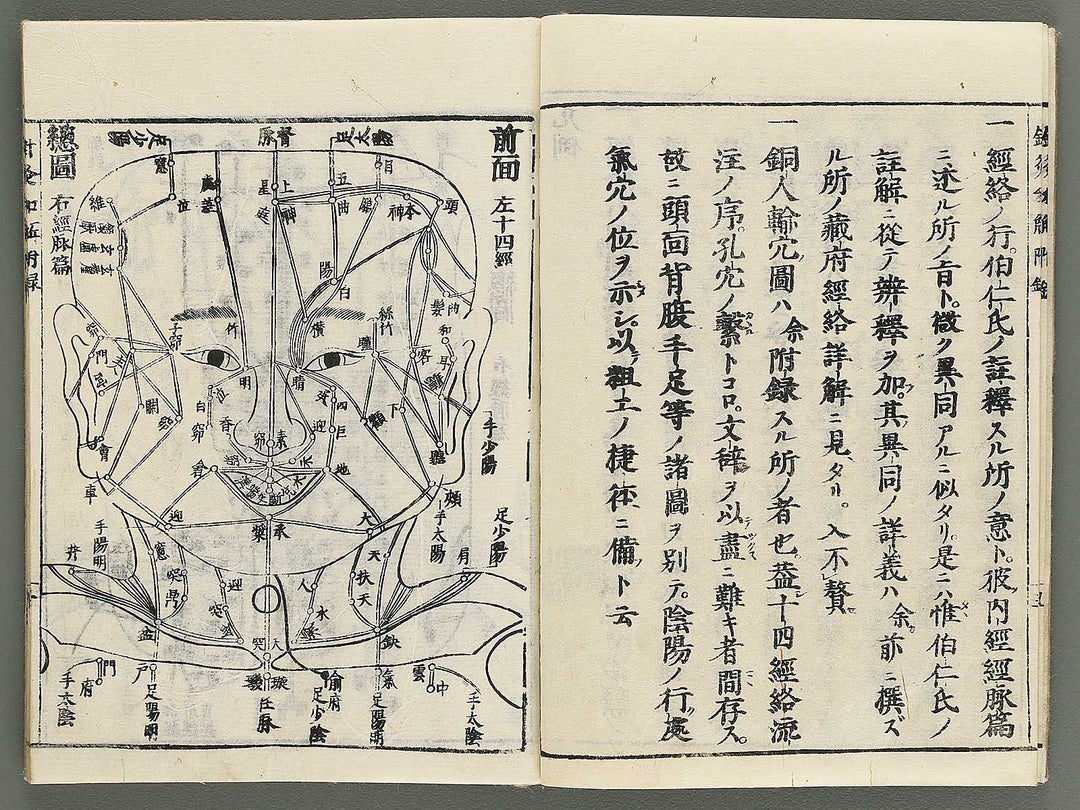 一 經絡ノ行伯仁氏ノ註釋スル所ノ意ト彼内經經脉篇
ニ述ル所ノ旨ト微ク異同アルニ似タリ是ニハ惟伯仁氏ノ
註解ニ從テ辨釋ヲ加其異同ノ詳義ハ余前ニ撰ズ
ル所ノ藏府經絡詳解ニ見タリ入不贅
一 銅人輸穴圖ハ余附録スル所ノ者也蓋十四經絡流
注ノ序孔穴ノ繋トコロ文辭ヲ以盡ニ難キ者間存ス
故ニ頭面背腹手足等ノ諸圖ヲ別テ陰陽ノ行處
氣穴ノ位ヲ示シ以粗工ノ捷徑ニ備ト云
前面 左十四經
總圖 右經脉篇
足太陽
督脉
足少陽
手少陽
足少陽
手太陽
手陽明
手太陰
足陽明
任脉
足少陰
足陽明
手太陰
目
五
上
星
神
庭
曲
本
神
頭
維
陽
白
竹
絲竹
橫
和
客
子
門
明
睛
四
白
巨
香
迎
素
地
下
聽
會
車
頰
大
迎
承
漿
井
肩
天
扶
天
人
迎
水
突
天
突
缺
盆
氣
戶
璇
璣
俞府
雲
門
中
府